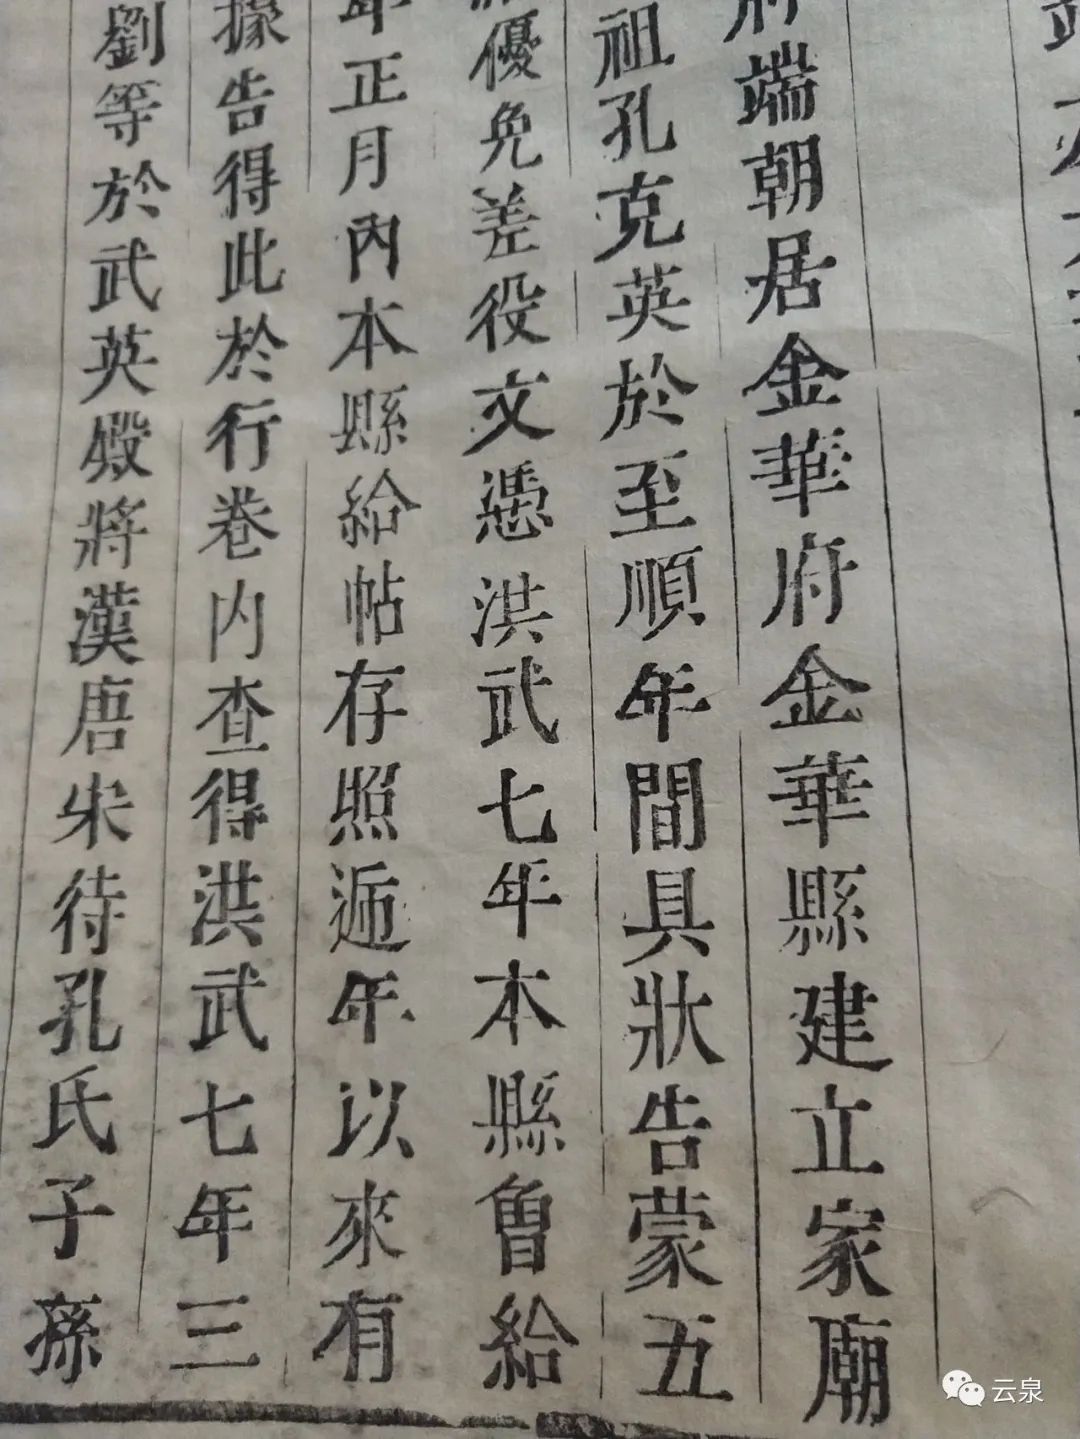 端朝居金華府金華縣建立家廟
祖孔克英於至順年間具狀告蒙五
優免差役文憑洪武七年本縣魯給
年正月內本縣給帖存照遞年以來有
據告得此於行卷內查得洪武七年三
劉等於武英殿將漢唐宋待孔氏子孫
云泉